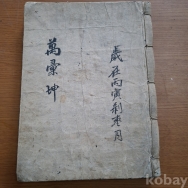 萬彙坤
歲在丙寅剝棗月
kobay